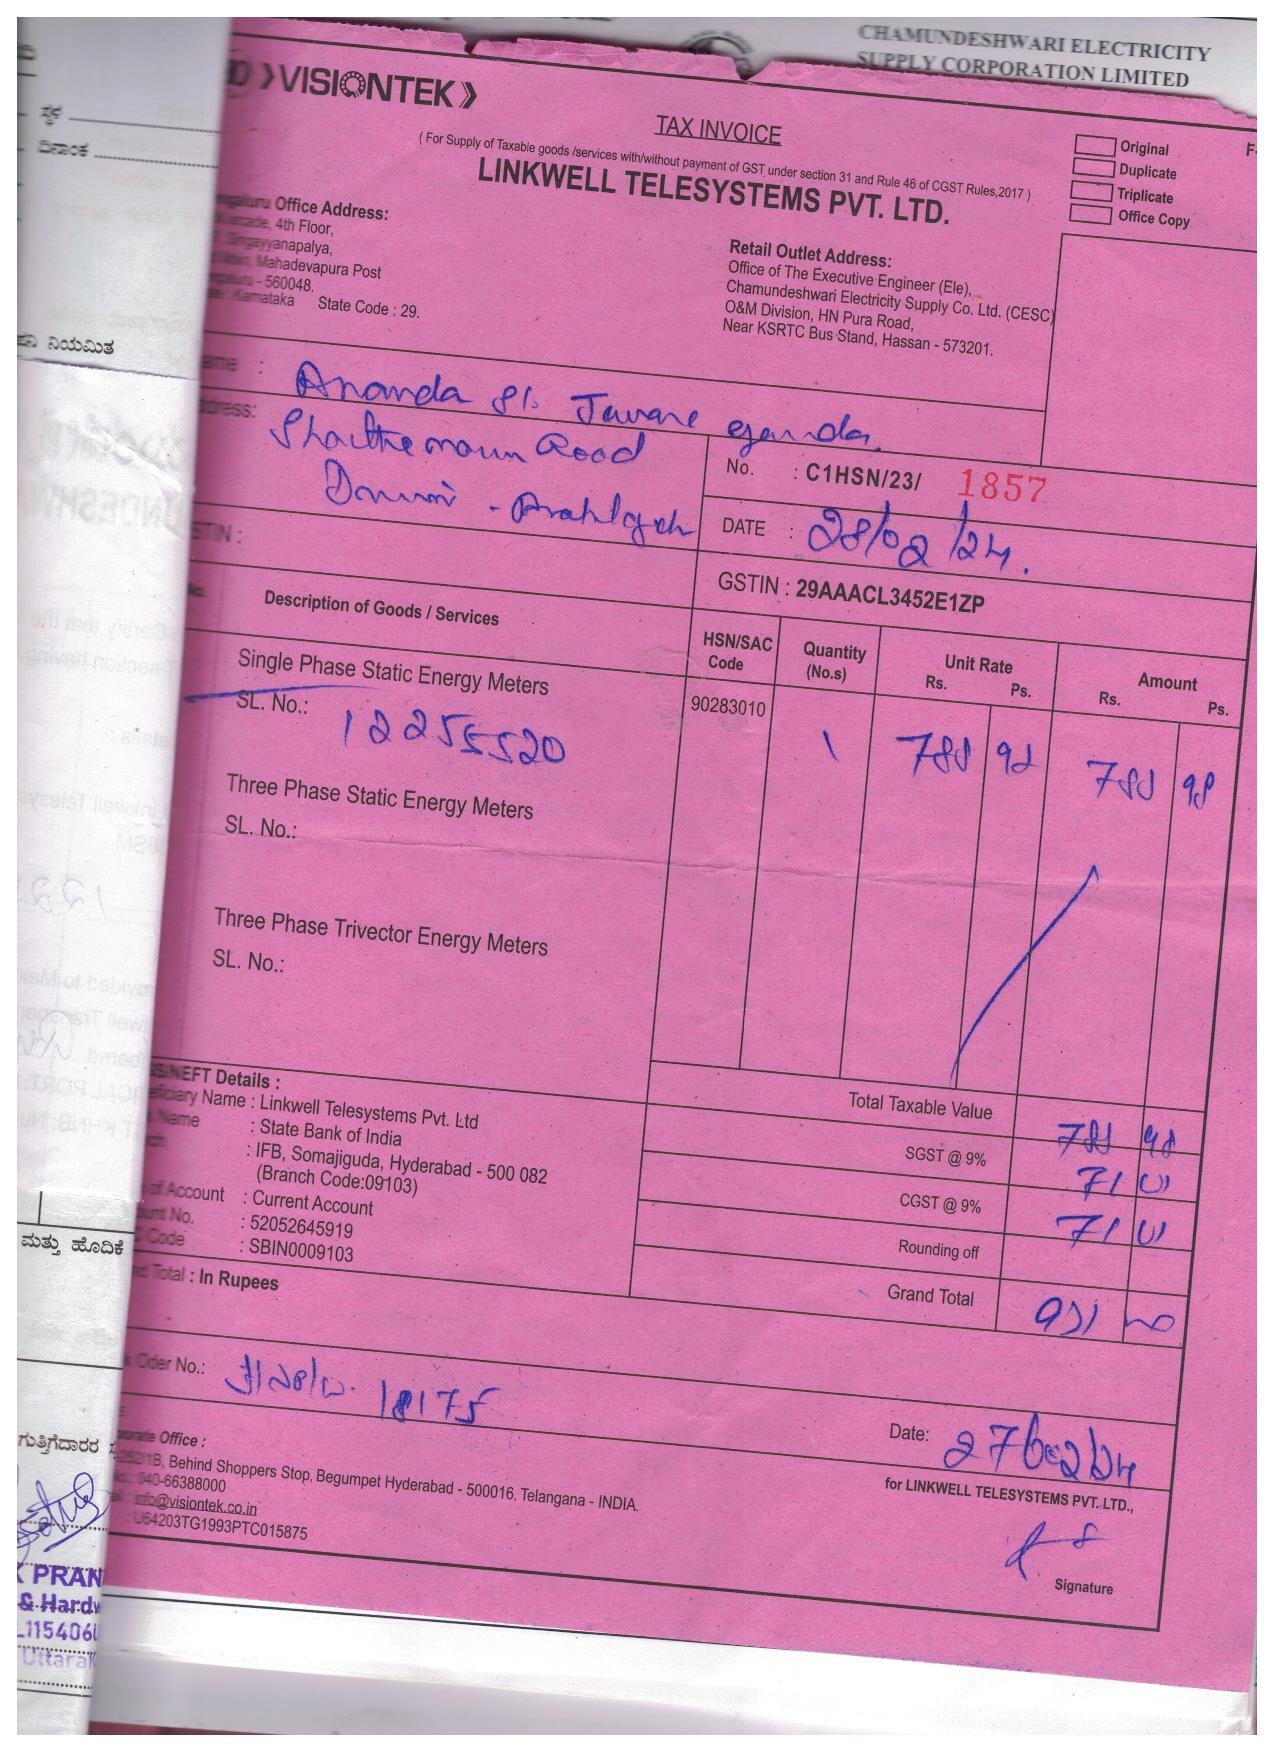 CHAMUNDESHWARI ELECTRICITY
SUPPLY CORPORATION LIMITED
VISIONTEK
TAX INVOICE
( For Supply of Taxable goods /services with/without payment of GST under section 31 and Rule 46 of CGST Rules,2017 )
LINKWELL TELESYSTEMS PVT. LTD.
Original
Duplicate
Triplicate
Office Copy
Office Address:
4th Floor,
Mahadevapura Post
- 560048.
Karnataka State Code : 29.
Retail Outlet Address:
Office of The Executive Engineer (Ele),
Chamundeshwari Electricity Supply Co. Ltd. (CESC)
O&M Division, HN Pura Road,
Near KSRTC Bus Stand, Hassan - 573201.
Ananda S/o
Road
No. : C1HSN/23/ 1857
DATE : 28/02/24.
GSTIN : 29AAACL3452E1ZP
Description of Goods / Services
HSN/SAC Code
Quantity (No.s)
Unit Rate Rs. Ps.
Amount Rs. Ps.
Single Phase Static Energy Meters
SL. No.: 12255520
90283010 1 788 98 788 98
Three Phase Static Energy Meters
SL. No.:
Three Phase Trivector Energy Meters
SL. No.:
NEFT Details :
Name : Linkwell Telesystems Pvt. Ltd
Name : State Bank of India
: IFB, Somajiguda, Hyderabad - 500 082
(Branch Code:09103)
of Account : Current Account
No. : 52052645919
Code : SBIN0009103
Total Taxable Value 788 98
SGST @ 9% 71 01
CGST @ 9% 71 01
Rounding off
Grand Total 931 00
Total : In Rupees
Oder No.: 18175
Date: 27/02/24
Office :
Behind Shoppers Stop, Begumpet Hyderabad - 500016, Telangana - INDIA.
: 040-66388000
: info@visiontek.co.in
: U64203TG1993PTC015875
for LINKWELL TELESYSTEMS PVT. LTD.,
Signature
ಸ್ಥಳ
ದಿನಾಂಕ
ನಿಯಮಿತ
ಮತ್ತು ಹೊದಿಕೆ
PRAN
& Hardw